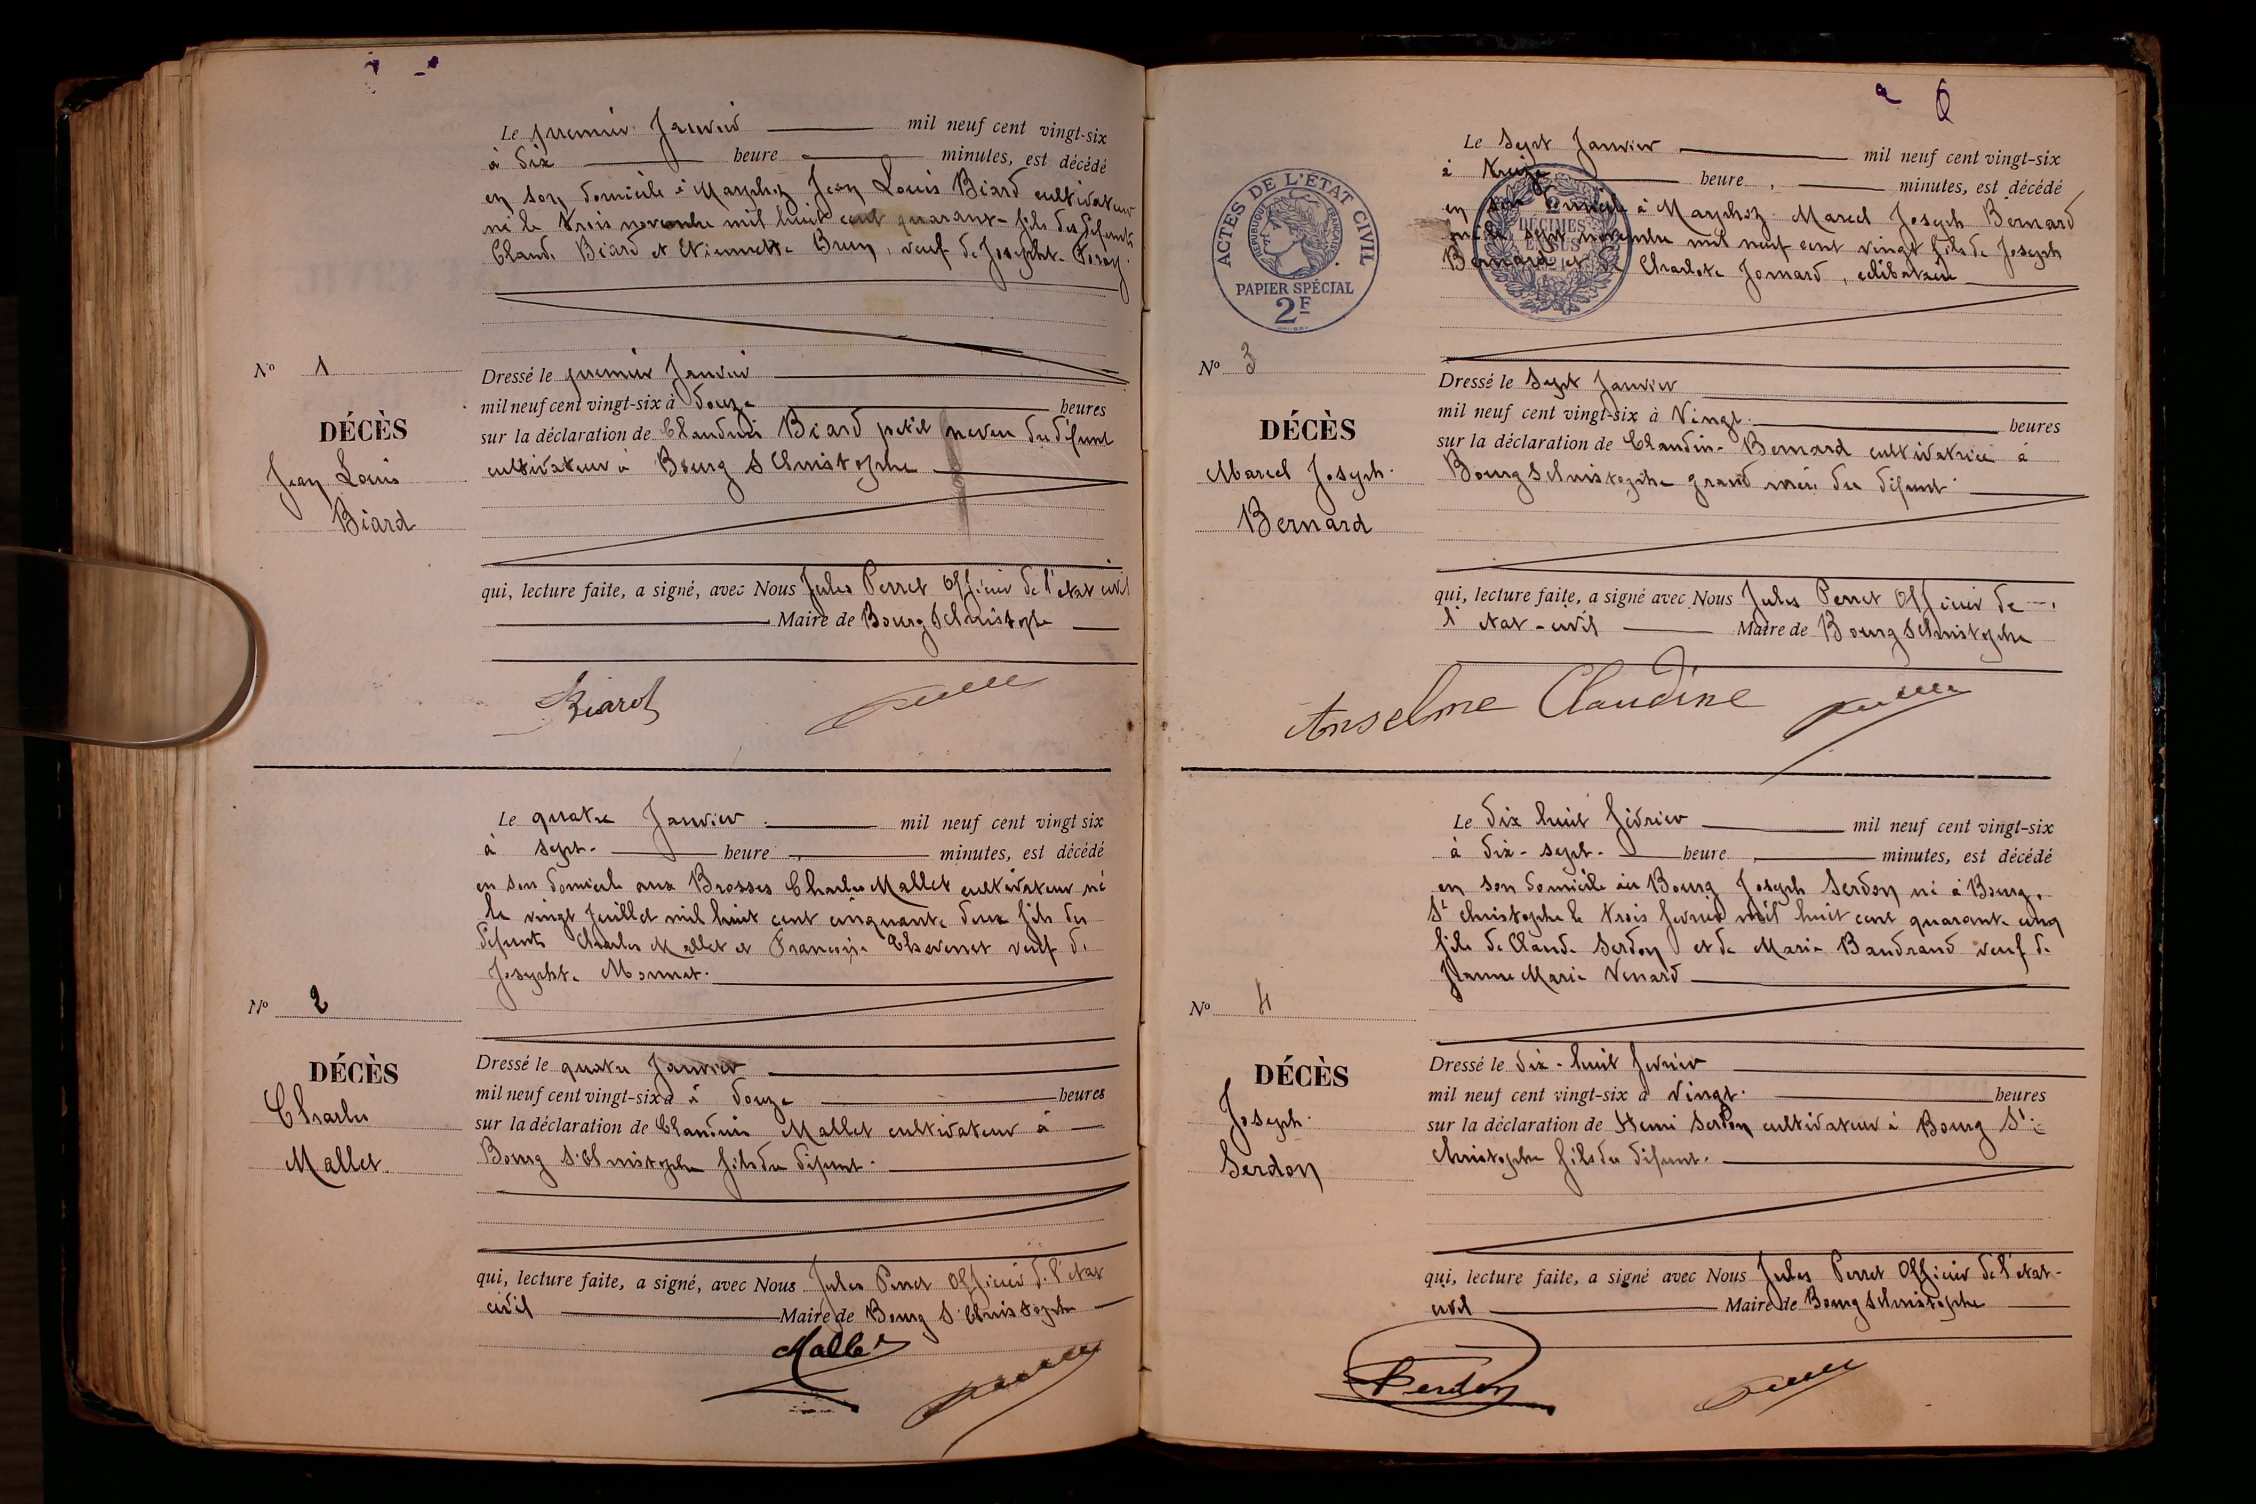 Le premier Janvier mil neuf cent vingt-six
à dix heure minutes, est décédé
en son domicile à Marphoz Jean Louis Biard cultivateur
né le trois novembre mil huit cent quarante fils des défunts
Claude Biard et Etiennette Brun, veuf de Josephte
No 1
DÉCÈS
Jean Louis
Biard
Dressé le premier Janvier
mil neuf cent vingt-six à douze heures
sur la déclaration de Claudius Biard petit neveu du défunt
cultivateur à Bourg St Christophe
qui, lecture faite, a signé, avec Nous Jules Perret Officier de l'etat civil
Maire de Bourg St Christophe
Biard
Le quatre Janvier mil neuf cent vingt six
à sept heure minutes, est décédé
en son domicile aux Brosses Charles Mallet cultivateur né
le vingt Juillet mil huit cent cinquante deux fils des
défunts Charles Mallet et Françoise Thevenet veuf de
Josephte Monnet
No 2
DÉCÈS
Charles
Mallet
Dressé le quatre Janvier
mil neuf cent vingt-six à à douze heures
sur la déclaration de Claudius Mallet cultivateur à
Bourg St Christophe fils du défunt
qui, lecture faite, a signé, avec Nous Jules Perret Officier de l'etat
civil Maire de Bourg St Christophe
Mallet
6
Le Sept Janvier mil neuf cent vingt-six
à treize heure minutes, est décédé
en son domicile à Marphoz Marcel Joseph Bernard
né le sept novembre mil neuf cent vingt fils de Joseph
Bernard et de Charlotte Jomard, célibataire
ACTES DE L'ÉTAT CIVIL
RÉPUBLIQUE FRANÇAISE
PAPIER SPÉCIAL
2F
2
DÉCIMES
EN SUS
No 3
DÉCÈS
Marcel Joseph
Bernard
Dressé le Sept Janvier
mil neuf cent vingt-six à Vingt heures
sur la déclaration de Claudine Bernard cultivatrice à
Bourg St Christophe grand mère du défunt
qui, lecture faite, a signé avec Nous Jules Perret Officier de
l'etat-civil Maire de Bourg St Christophe
Anselme Claudine
Le dix huit février mil neuf cent vingt-six
à dix-sept heure minutes, est décédé
en son domicile au Bourg Joseph Serdon né à Bourg
St Christophe le trois fevrier mil huit cent quarante cinq
fils de Claude Serdon et de Marie Baudrand veuf de
Jeanne Marie Venard
No 4
DÉCÈS
Joseph
Serdon
Dressé le dix-huit fevrier
mil neuf cent vingt-six à vingt heures
sur la déclaration de Henri Serdon cultivateur à Bourg St
Christophe fils du défunt
qui, lecture faite, a signé avec Nous Jules Perret Officier de l'etat-
civil Maire de Bourg St Christophe
Serdon